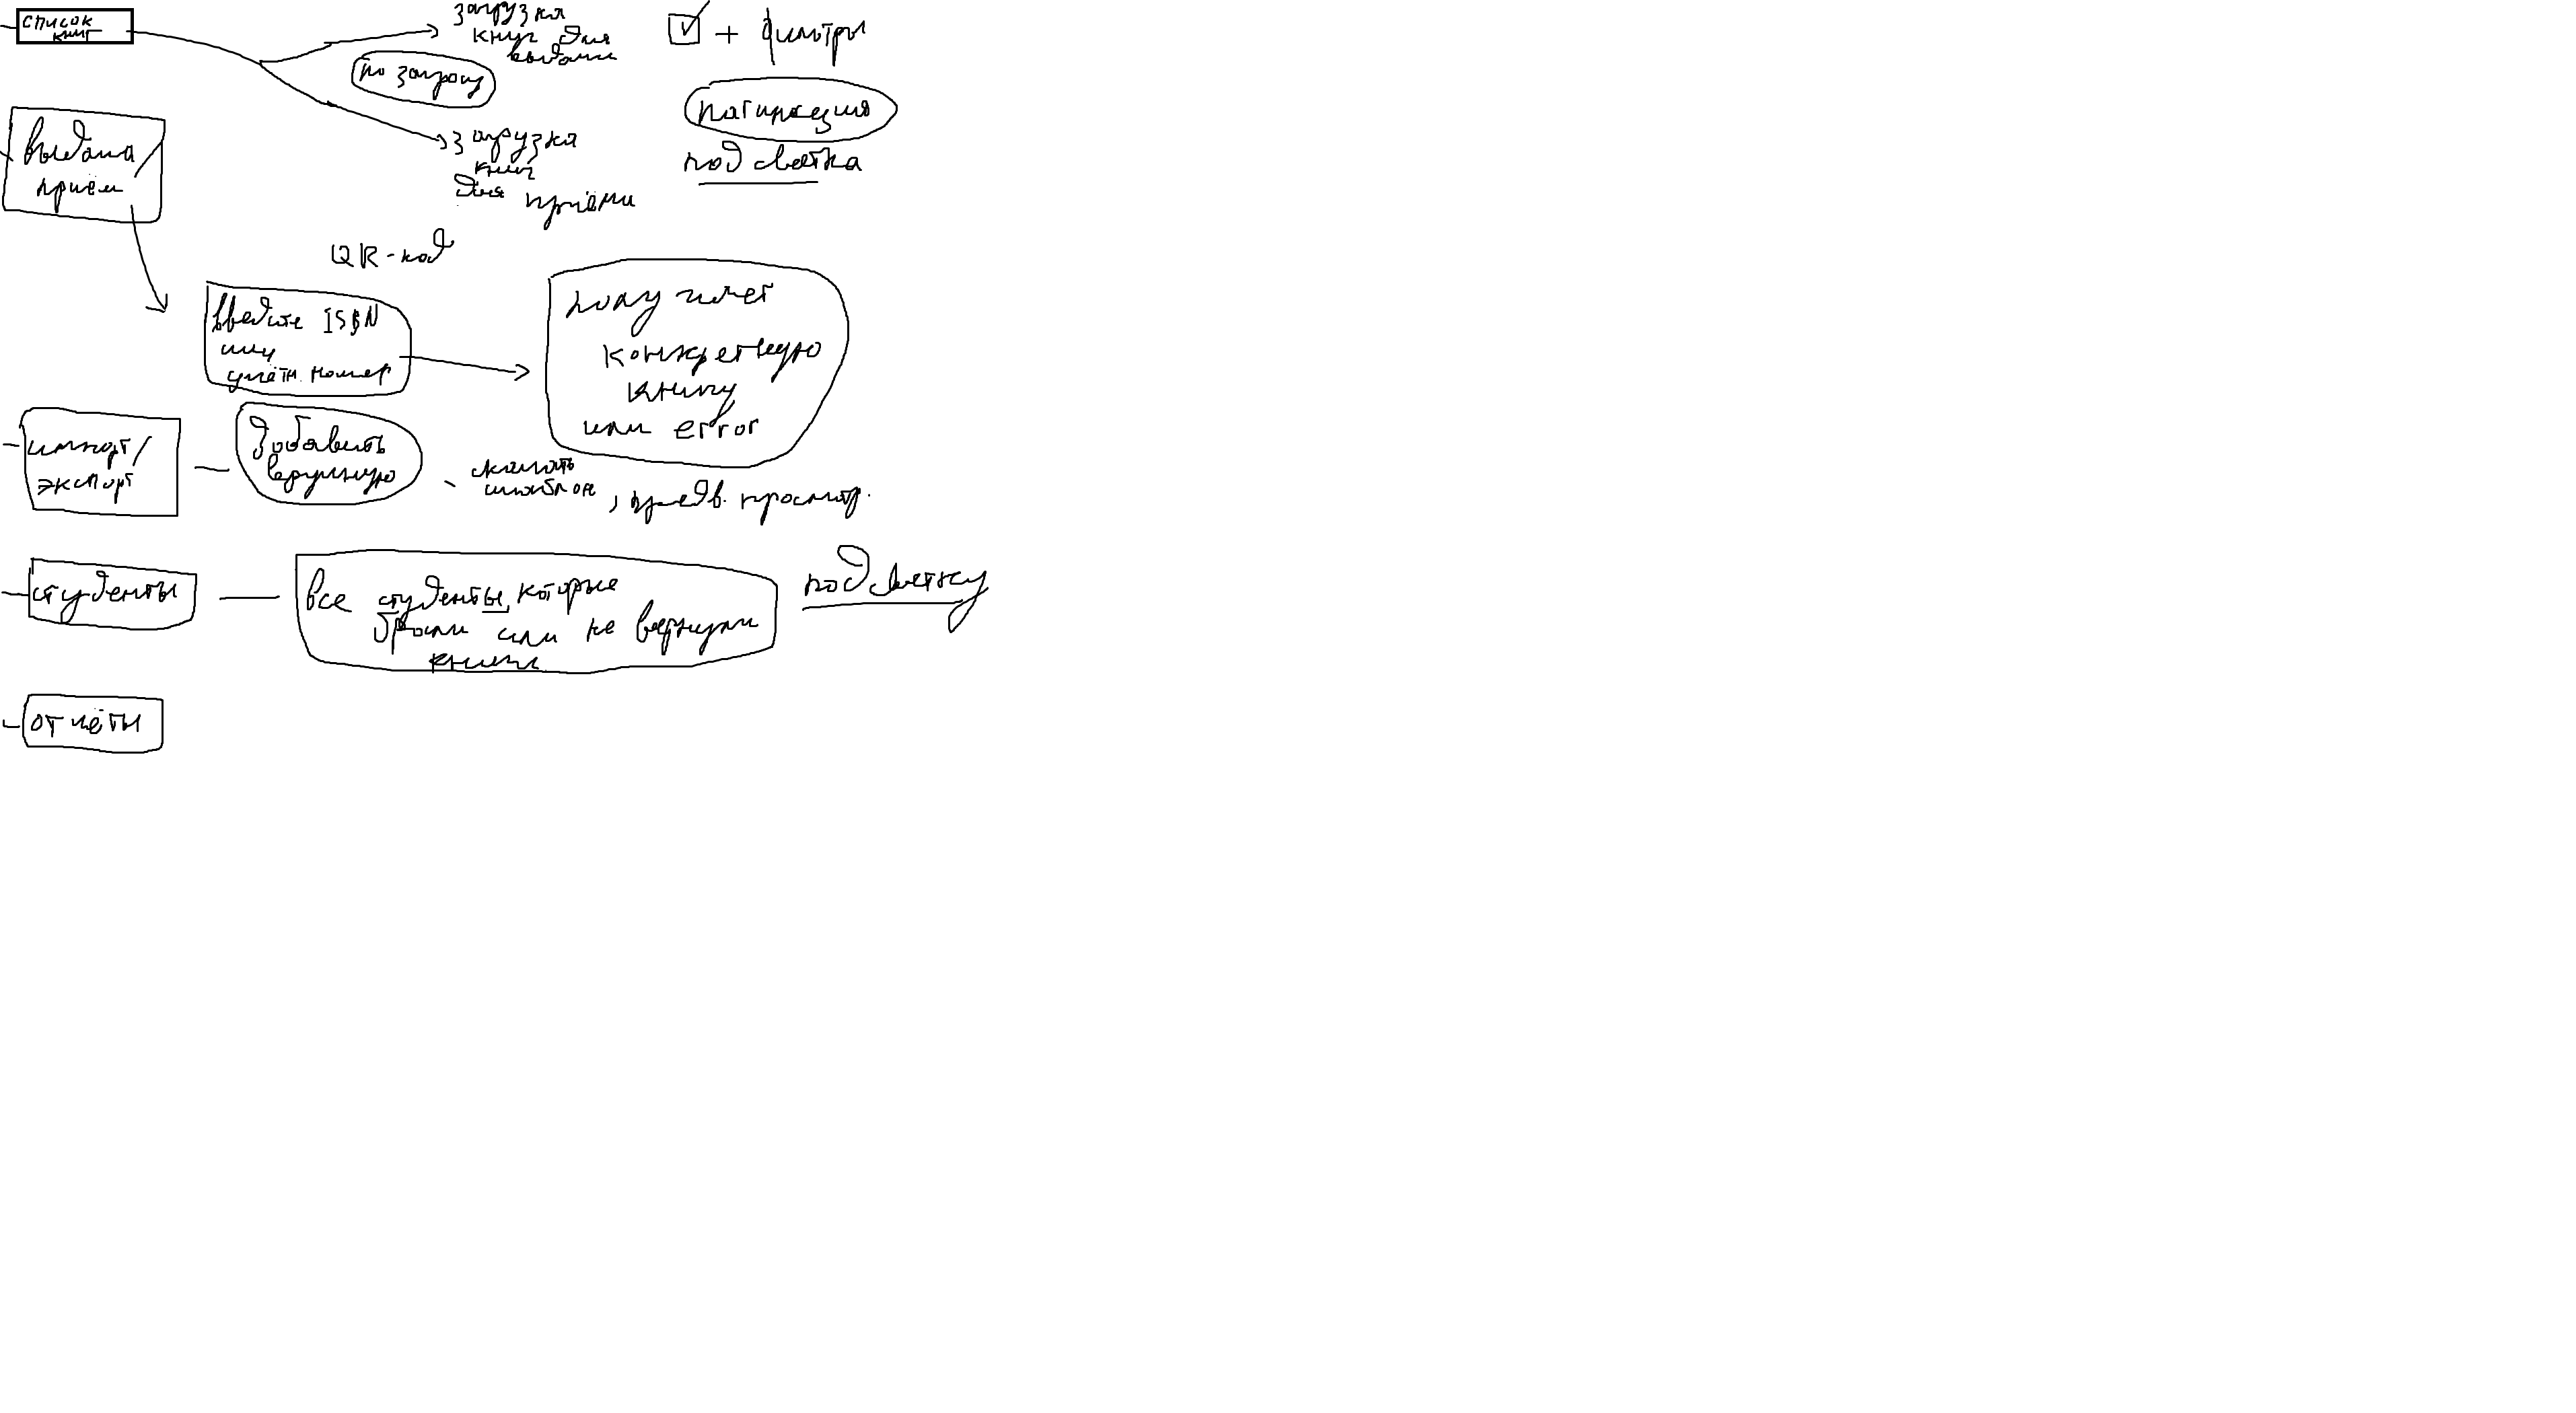 список
книг
загрузка
книг для
выдачи
+ фильтры
по запросу
пагинация
подсветка
выдача/
приём
загрузка
книг
для приёма
QR-код
введите ISBN
или
учётн. номер
получает
конкретную
книгу
или error
импорт/
экспорт
добавить
вручную
скачать
шаблон, предв. просмотр.
студенты
все студенты, которые
брали или не вернули
книги
подсветку
отчёты